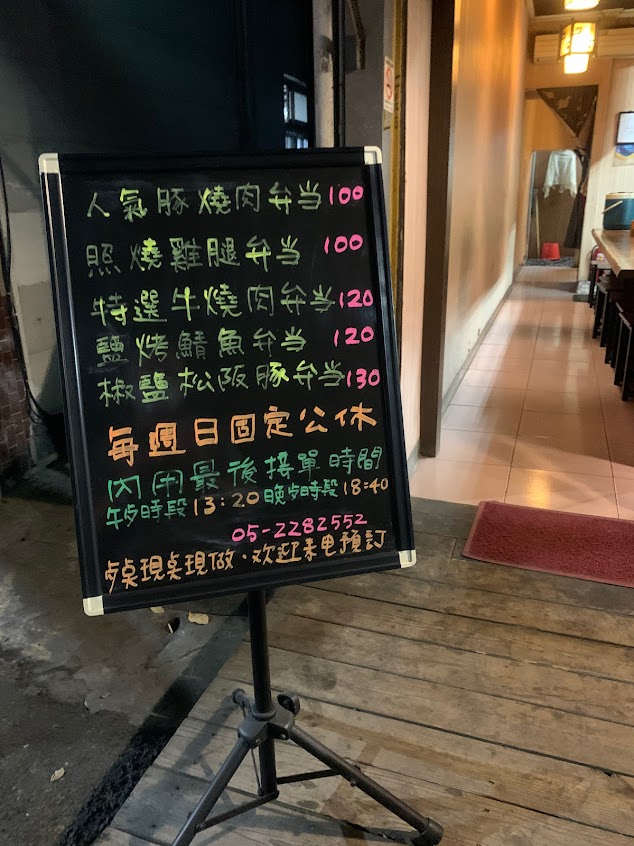 人氣豚燒肉弁当100
照燒雞腿弁当 100
特選牛燒肉弁当120
鹽烤鯖魚弁当 120
椒鹽松阪豚弁当130
每週日固定公休
內用最後接單時間
午歺時段13:20晚歺時段18:40
05-2282552
歺桌現桌現做·欢迎来电預訂